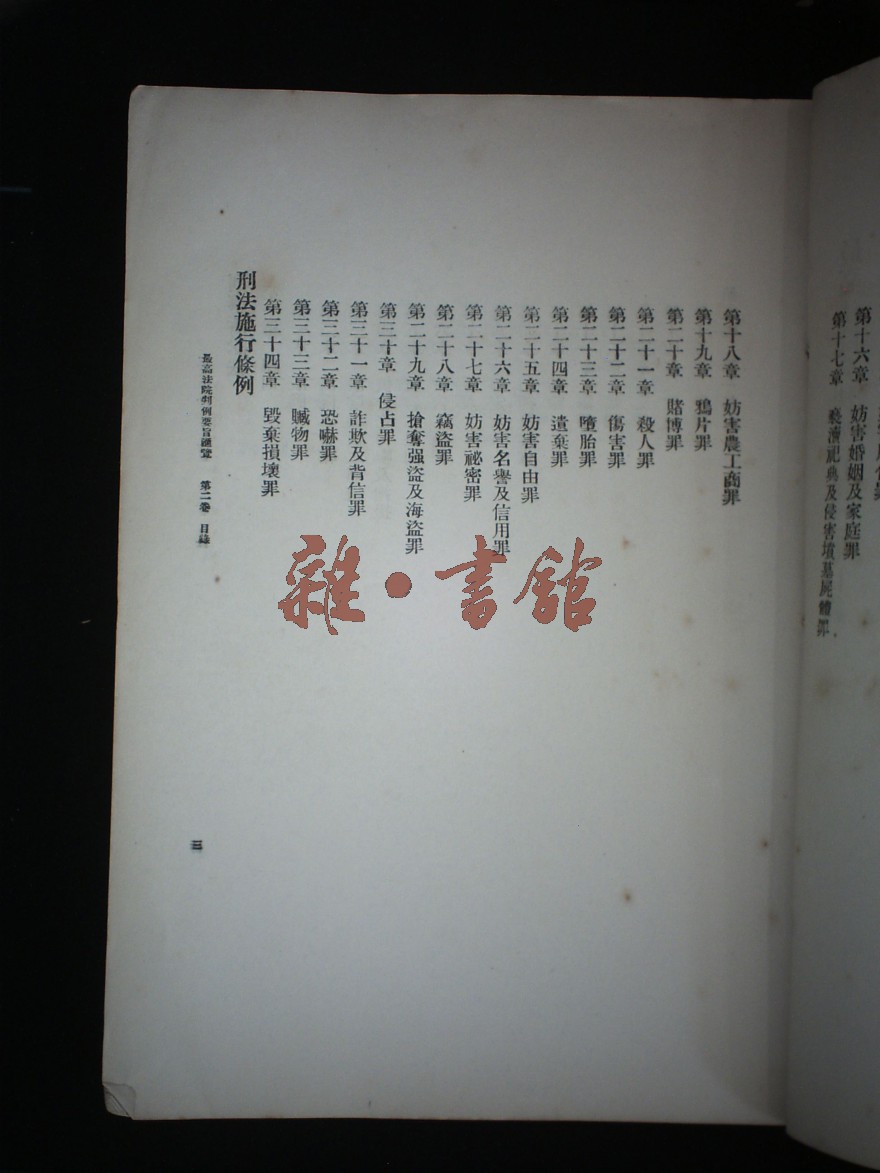 第十六章　妨害婚姻及家庭罪
第十七章　褻瀆祀典及侵害墳墓屍體罪
第十八章　妨害農工商罪
第十九章　鴉片罪
第二十章　賭博罪
第二十一章　殺人罪
第二十二章　傷害罪
第二十三章　墮胎罪
第二十四章　遺棄罪
第二十五章　妨害自由罪
第二十六章　妨害名譽及信用罪
第二十七章　妨害祕密罪
第二十八章　竊盜罪
第二十九章　搶奪强盜及海盜罪
第三十章　侵占罪
第三十一章　詐欺及背信罪
第三十二章　恐嚇罪
第三十三章　贓物罪
第三十四章　毀棄損壞罪
刑法施行條例
最高法院判例要旨彙覽　第二卷　目錄
三
雜·書館